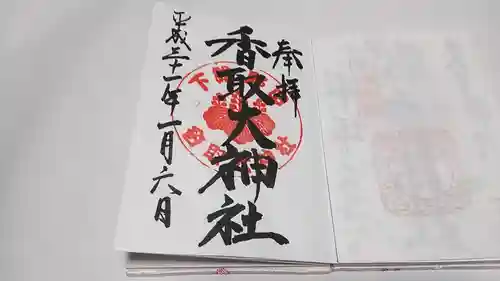 奉拝
香取大神社
平成三十一年一月六日